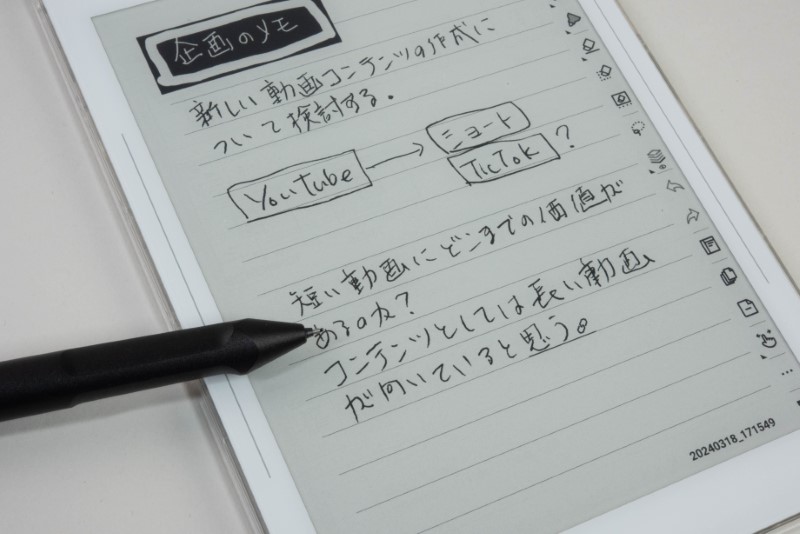 企画のメモ
新しい動画コンテンツの作成に
ついて検討する.
YouTube → ショート
TicTok ?
短い動画にどこまでの価値が
あるのか?
コンテンツとしては長い動画
が向いていると思う。
20240318_171549